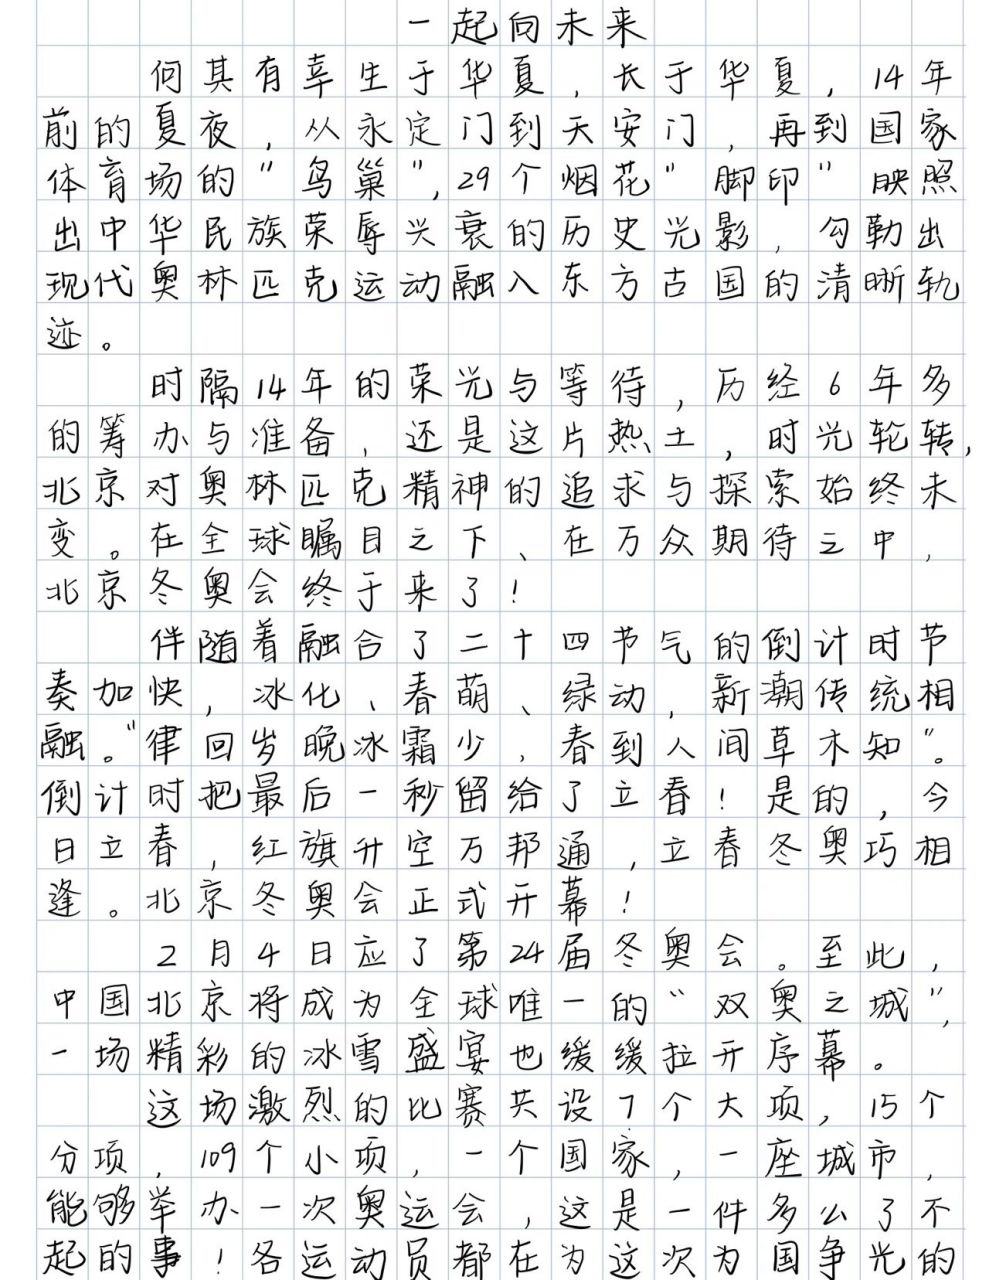 一起向未来
何其有幸生于华夏，长于华夏，14年
前的夏夜，从永定门到天安门，再到国家
体育场的“鸟巢”，29个烟花“脚印”映照
出中华民族荣辱兴衰的历史光影，勾勒出
现代奥林匹克运动融入东方古国的清晰轨
迹。
时隔14年的荣光与等待，历经6年多
的筹办与准备，还是这片热土，时光轮转，
北京对奥林匹克精神的追求与探索始终未
变。在全球瞩目之下、在万众期待之中，
北京冬奥会终于来了！
伴随着融合了二十四节气的倒计时节
奏加快，冰化、春萌、绿动，新潮传统相
融。“律回岁晚冰霜少，春到人间草木知”。
倒计时把最后一秒留给了立春！是的，今
日立春，红旗升空万邦通，立春冬奥巧相
逢。北京冬奥会正式开幕！
2月4日应了第24届冬奥会。至此，
中国北京将成为全球唯一的“双奥之城”，
一场精彩的冰雪盛宴也缓缓拉开序幕。
这场激烈的比赛共设7个大项，15个
分项，109个小项，一个国家，一座城市，
能够举办一次奥运会，这是一件多么了不
起的事！各运动员都在为这次为国争光的